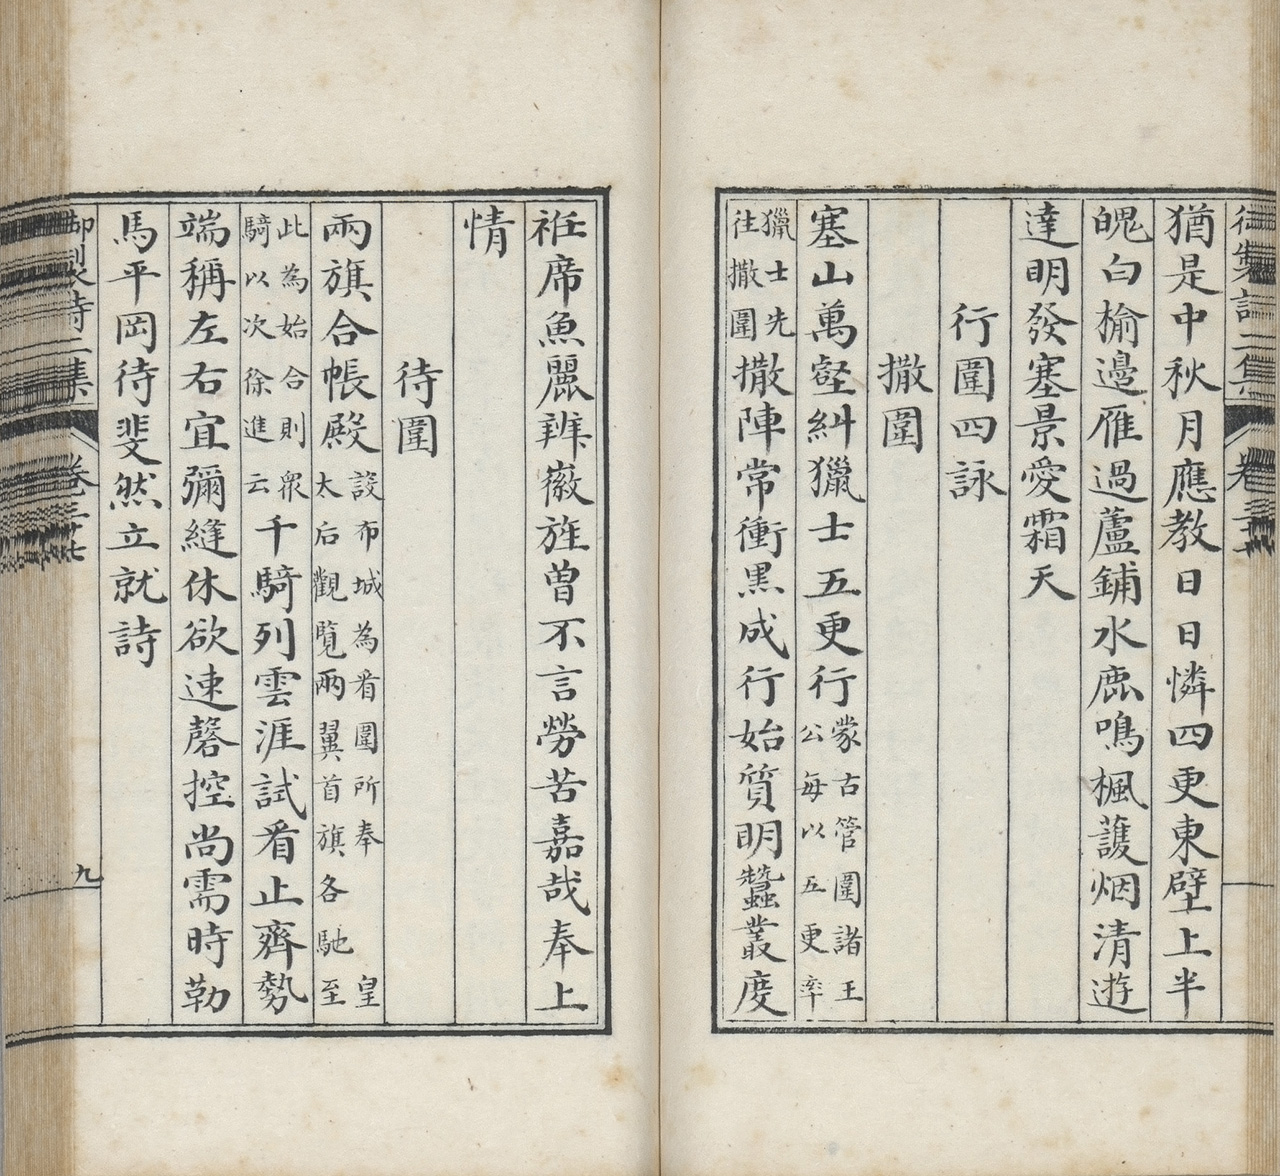 御製詩二集 卷三十
猶是中秋月應教日日憐四更東壁上半
魄白榆邊雁過蘆鋪水鹿鳴楓護烟清遊
達明發塞景愛霜天
行圍四詠
撒圍
塞山萬壑糾獵士五更行蒙古管圍諸王公每以五更率
獵士先往撒圍撒陣常衝黑成行始質明蠶叢度
衽席魚麗辨徽旌曾不言勞苦嘉哉奉上
情
待圍
兩旗合帳殿設布城為看圍所奉皇太后觀覽兩翼首旗各馳至
此為始合則衆騎以次徐進云千騎列雲涯試看止齊勢
端稱左右宜彌縫休欲速磬控尚需時勒
馬平岡待斐然立就詩
御製詩二集 卷三十七 九